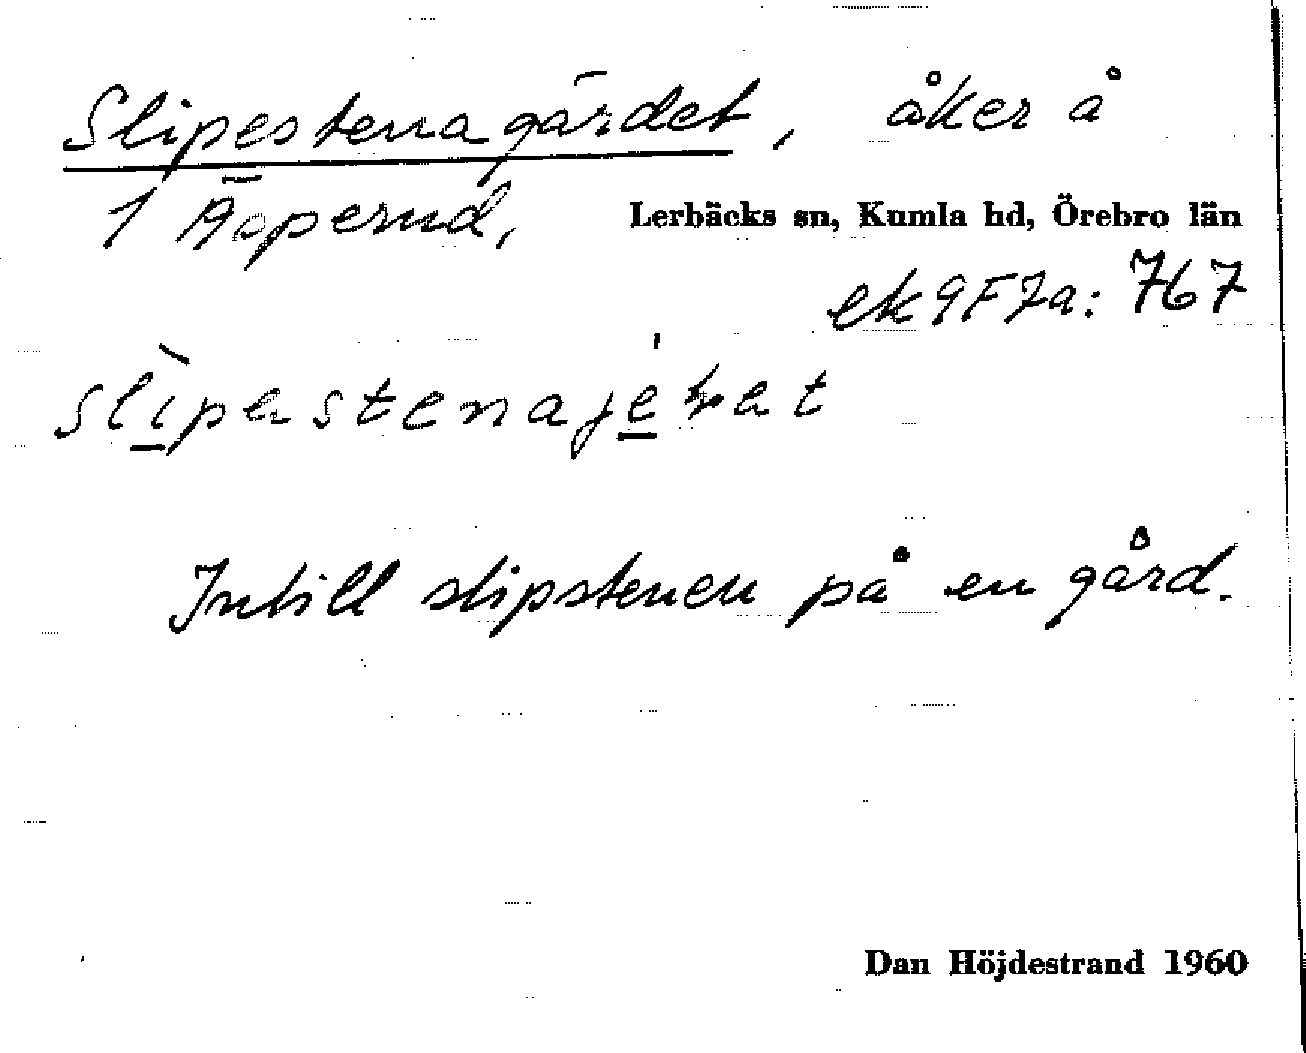 Slipestenagärdet, åker å
1 Äpperud,
Lerbäcks sn, Kumla hd, Örebro län
ek 9F7a: 767
Intill slipstenen på en gård.
Dan Höjdestrand 1960